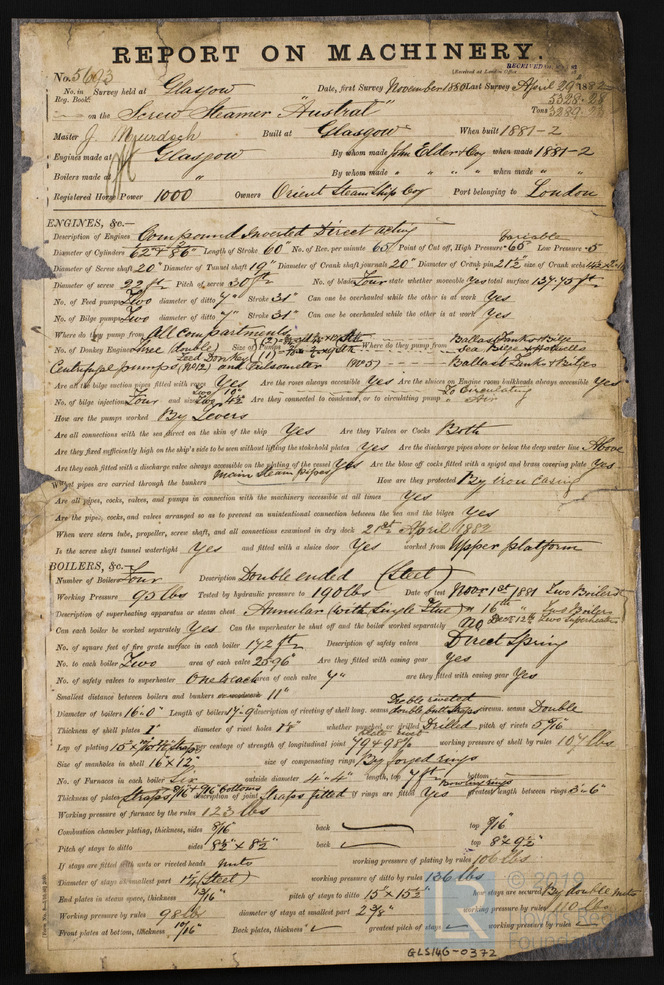 REPORT ON MACHINERY.
No. 5603
RECEIVED
(Received at London Office
No. in Survey held at Glasgow Date, first Survey November 1880 Last Survey April 29th 1882
Reg. Book.
5328.28
on the Screw Steamer "Austral" Tons 3289.23
Master J. Murdoch Built at Glasgow When built 1881-2
Engines made at Glasgow By whom made John Elder & Coy when made 1881-2
Boilers made at " By whom made " " " " when made " "
Registered Horse Power 1000 Owners Orient Steam Ship Coy Port belonging to London
ENGINES, &c.—
Description of Engines Compound Inverted Direct acting
Variable
Diameter of Cylinders Length of Stroke 60" No. of Rev. per minute 65 Point of Cut off, High Pressure .68 Low Pressure .5
Diameter of Screw shaft 20" Diameter of Tunnel shaft 19" Diameter of Crank shaft journals 20" Diameter of Crank pin 21½ size of Crank webs
Diameter of screw 22 ft Pitch of screw 30 ft No. of blades Four state whether moveable Yes total surface 137.75 ft
No. of Feed pumps Two diameter of ditto 7" Stroke 31" Can one be overhauled while the other is at work Yes
No. of Bilge pumps Two diameter of ditto 7" Stroke 31" Can one be overhauled while the other is at work Yes
Where do they pump from All compartments
No. of Donkey Engines Three (double) Size of Pumps Where do they pump from Ballast Tanks & Bilge
Feed Donkey (1) Sea Bilge & Hotwells
Centrifugal pumps (No 12) and Pulsometer (No 5) Ballast Tanks & Bilges
Are all the bilge suction pipes fitted with roses Yes Are the roses always accessible Yes Are the sluices on Engine room bulkheads always accessible Yes
No. of bilge injections Four and sizes Are they connected to condenser, or to circulating pump To Circulating
How are the pumps worked By Levers
Are all connections with the sea direct on the skin of the ship Yes Are they Valves or Cocks Both
Are they fixed sufficiently high on the ship's side to be seen without lifting the stokehold plates Yes Are the discharge pipes above or below the deep water line Above
Are they each fitted with a discharge valve always accessible on the plating of the vessel Yes Are the blow off cocks fitted with a spigot and brass covering plate Yes
What pipes are carried through the bunkers Main Steam Pipes How are they protected By Iron Casing
Are all pipes, cocks, valves, and pumps in connection with the machinery accessible at all times Yes
Are the pipes, cocks, and valves arranged so as to prevent an unintentional connection between the sea and the bilges Yes
When were stern tube, propeller, screw shaft, and all connections examined in dry dock 21st April 1882
Is the screw shaft tunnel watertight Yes and fitted with a sluice door Yes worked from Upper platform
BOILERS, &c.—
Number of Boilers Four Description Double ended (Steel)
Working Pressure 95 lbs Tested by hydraulic pressure to 190 lbs Date of test Novr 1st 1881 Two Boilers
" 16th " Two Boilers
Description of superheating apparatus or steam chest Annular (with Single Flue)
Decr 12th Two Superheaters
Can each boiler be worked separately Yes Can the superheater be shut off and the boiler worked separately No
No. of square feet of fire grate surface in each boiler 172 ft Description of safety valves Direct Spring
No. to each boiler Two area of each valve 25.96" Are they fitted with easing gear Yes
No. of safety valves to superheater One to each area of each valve 7" are they fitted with easing gear Yes
Smallest distance between boilers and bunkers or woodwork 11"
Treble riveted
Diameter of boilers 16'-0" Length of boilers 17'-9" description of riveting of shell long. seams double butt straps circum. seams Double
Thickness of shell plates 1" diameter of rivet holes whether punched or drilled Drilled pitch of rivets 5 9/16"
plate rivet
Lap of plating per centage of strength of longitudinal joint 79 & 98% working pressure of shell by rules 107 lbs
Size of manholes in shell 16" x 12" size of compensating rings By forged rings
No. of Furnaces in each boiler Six outside diameter 4'-4" length, top 7 ft bottom
Thickness of plates description of joint Straps fitted if rings are fitted Yes greatest length between rings 3'-6"
Working pressure of furnace by the rules 123 lbs
Combustion chamber plating, thickness, sides 9/16" back top 9/16"
Pitch of stays to ditto sides 8½" x 8½" back top 8" x 9½"
If stays are fitted with nuts or riveted heads Nuts working pressure of plating by rules 106 lbs
Diameter of stays at smallest part 1¼ (Steel) working pressure of ditto by rules 136 lbs
End plates in steam space, thickness 13/16" pitch of stays to ditto 15" x 15½" how stays are secured By double nuts
Working pressure by rules 98 lbs diameter of stays at smallest part 2⅜" working pressure by rules 110 lbs
Front plates at bottom, thickness 10/16" Back plates, thickness greatest pitch of stays working pressure by rules
© 2019
Lloyd's Register
Foundation
GLS14G-0372